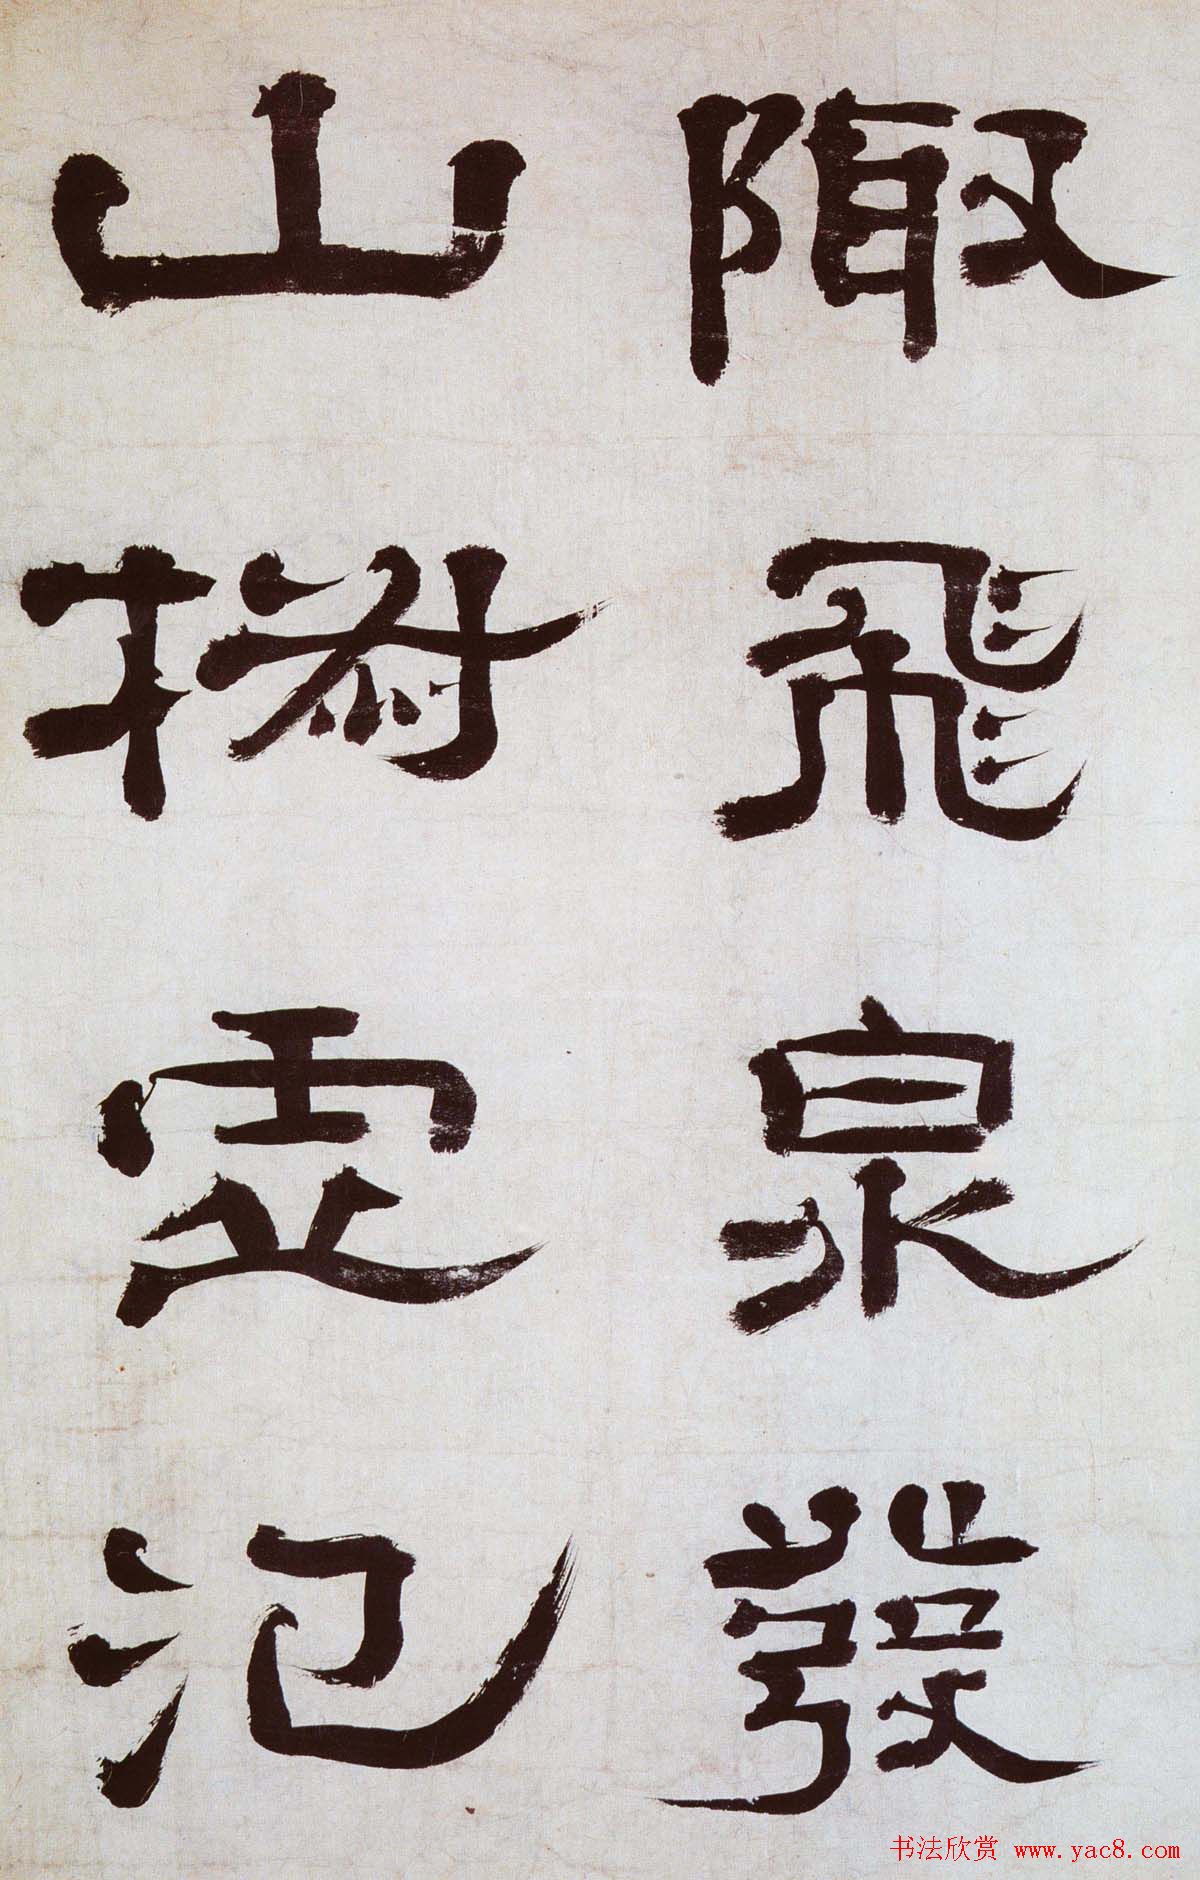 陬飛泉發
山樹虛氾
书法欣赏 www.yac8.com